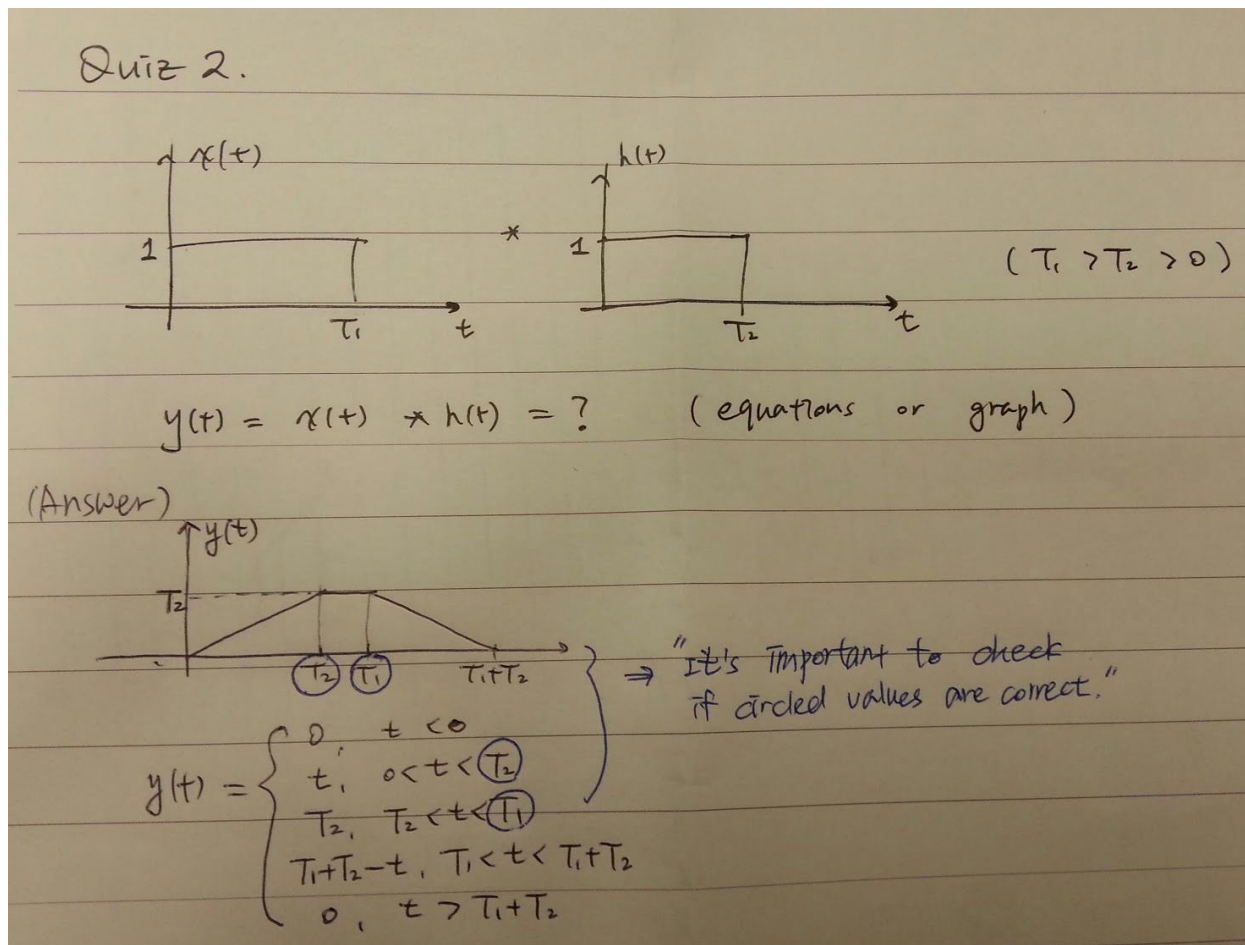 Quiz 2.
x(t)
1
T₁
t
*
h(t)
1
T₂
t
(T₁ > T₂ > 0)
y(t) = x(t) * h(t) = ? (equations or graph)
(Answer)
y(t)
T₂
T₂ T₁ T₁+T₂
⇒ "It's important to check
if circled values are correct."
0, t < 0
y(t) = { t, 0 < t < T₂
T₂, T₂ < t < T₁
T₁+T₂-t, T₁ < t < T₁+T₂
0, t > T₁+T₂